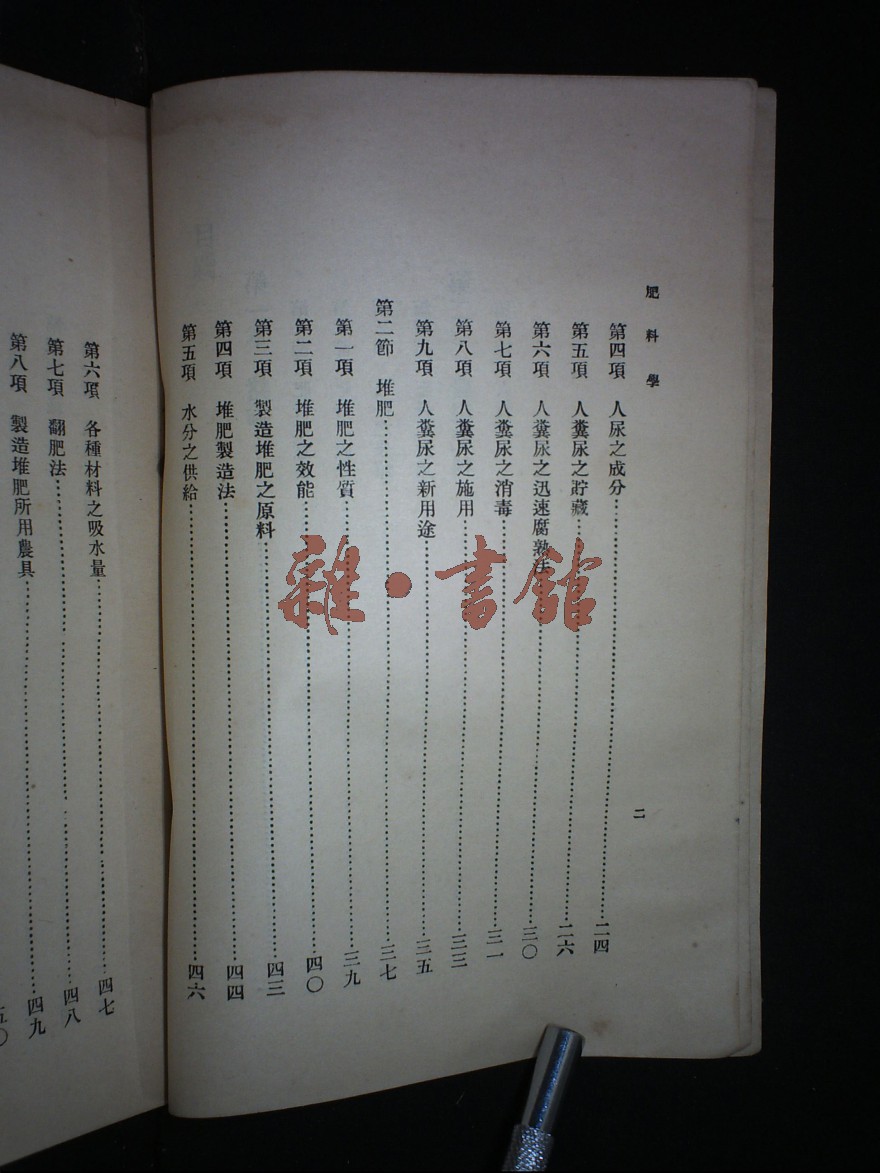 肥料學
二
第四項 人尿之成分……二四
第五項 人糞尿之貯藏……二六
第六項 人糞尿之迅速腐熟法……三〇
第七項 人糞尿之消毒……三一
第八項 人糞尿之施用……三三
第九項 人糞尿之新用途……三五
第二節 堆肥……三七
第一項 堆肥之性質……三九
第二項 堆肥之效能……四〇
第三項 製造堆肥之原料……四三
第四項 堆肥製造法……四四
第五項 水分之供給……四六
第六項 各種材料之吸水量……四七
第七項 翻肥法……四八
第八項 製造堆肥所用農具……四九
五〇
雜·書館